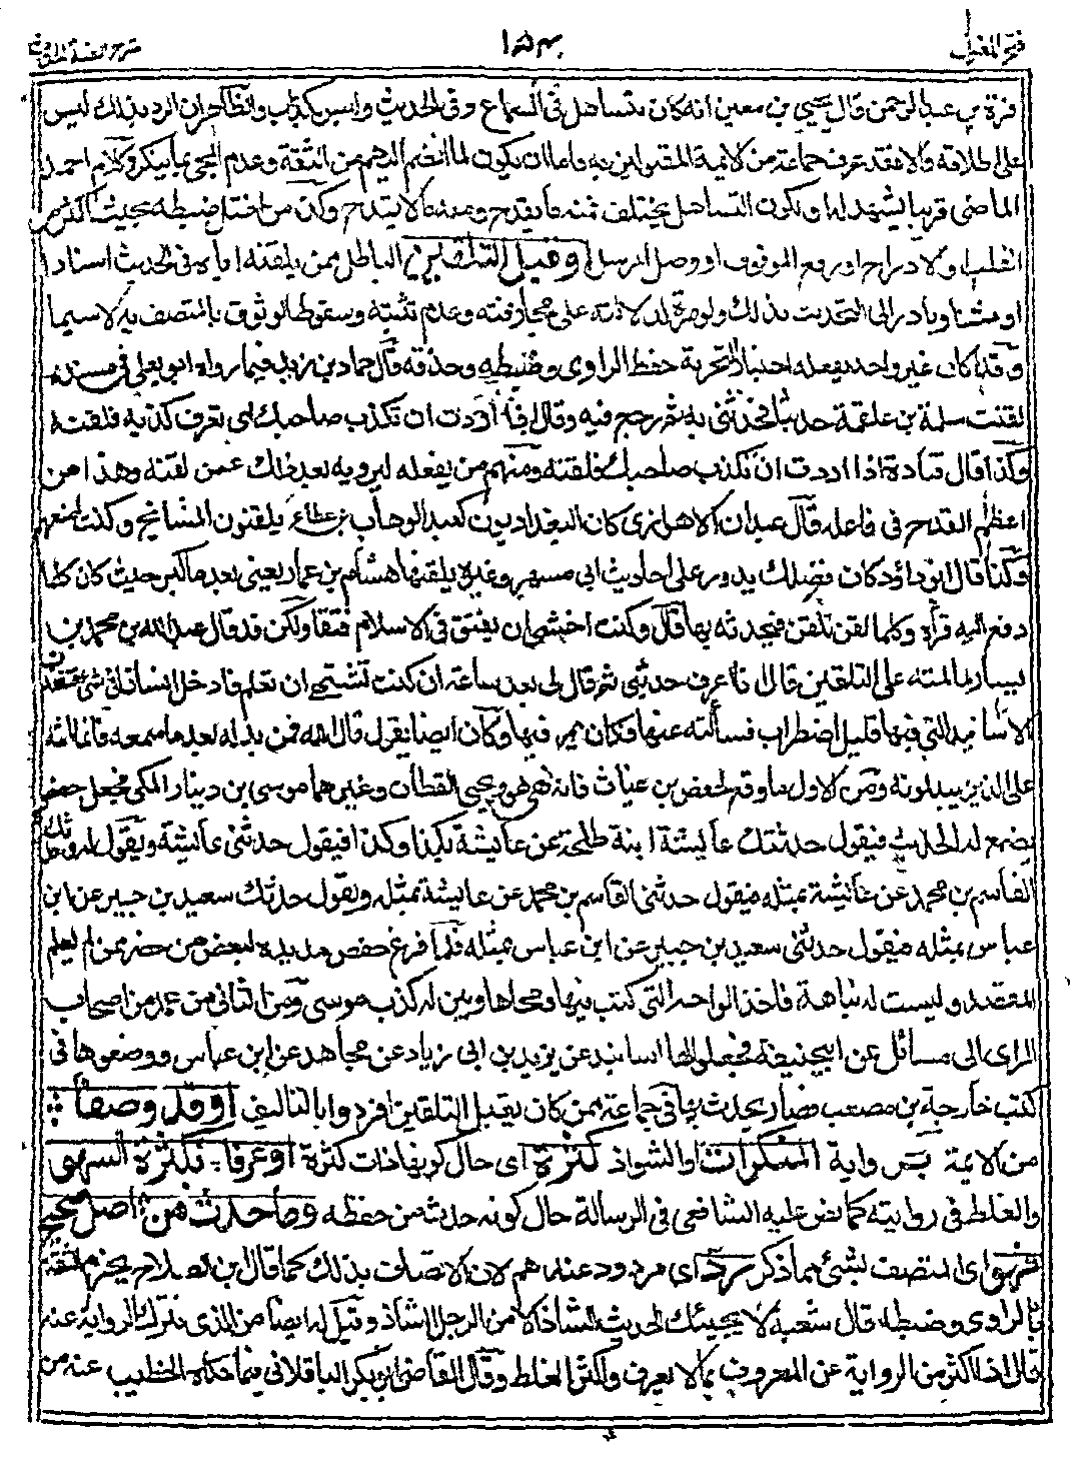 فتح المغيث ١٥٣ شرح الفية الحديث
قرة بن عبدالرحمن قال يحيى بن معين انه كان يتساهل فى السماع وفى الحديث وليس بكذاب والظاهر ان الرد بذلك ليس
على اطلاقه والا فقد عرف جماعة من الايمة المقبولين به فاما ان يكون لما انضم اليهم من الثقة وعدم المجئ بما ينكر وكلام احمد
الماضى قريبا يشهد له او لكون التساهل يختلف فمنه ما يقدح ومنه ما لا يقدح وكذا من اختل ضبطه بحيث اكثر من
القلب او الادراج او رفع الموقوف او وصل المرسل او قبل التلقين الباطل ممن يلقنه اياه فى الحديث اسنادا
او متنا وبادر الى التحديث بذلك ولو مرة لدلالته على مجازفته وعدم تثبته وسقوط الوثوق بالمتصف به لاسيما
وقد كان غير واحد يفعله اختبارا لتجربة حفظ الراوى وضبطه وحذقه قال حماد بن زيد فيما رواه ابو يعلى فى مسنده
لقنت سلمة بن علقمة حديثا فحدثنى به ثم رجع فيه وقال اذا اردت ان تكذب صاحبك اى تعرف كذبه فلقنه
وكذا قال قتادة اذا اردت ان تكذب صاحبك فلقنه ومنهم من يفعله ليرويه بعد ذلك عمن لقنه وهذا من
اعظم القدح فى فاعله قال عبدان الاهوازى كان البغداديون كعبد الوهاب بن عطاء يلقنون المشائخ وكنت امنعهم
وكذا قال ابن داؤد كان فضلك يدور على احاديث ابى مسهر وغيره يلقنها هشام بن عمار يعنى بعد ما كبر حيث كان كلما
دفع اليه قرأه وكلما لقن تلقن فيحدثه بها قال وكنت اخشى ان يفتق فى الاسلام فتقا ولكن قد قال عبد الله بن محمد بن
سيار لما لمته على التلقين قال انا اعرف حديثى ثم قال لى بعد ساعة ان كنت تشتهى ان تعلم فادخل اسنادا فى شئ فتفقدت
الاسانيد التى فيها قليل اضطراب فسألته عنها فكان يمر فيها وكان ايضا يقول قال الله فمن بدله بعد ما سمعه فانما اثمه
على الذين يبدلونه ومن الاول ما وقع لحفص بن غياث فانه هو ويحيى القطان وغيرهما موسى بن دينار المكى فجعل حفص
يضع له الحديث فيقول حدثتك عائشة ابنة طلحة عن عائشة بكذا وكذا فيقول حدثتنى عائشة ويقول له وحدثك
القاسم بن محمد عن عائشة بمثله فيقول حدثنى القاسم بن محمد عن عائشة بمثله ويقول حدثك سعيد بن جبير عن ابن
عباس بمثله فيقول حدثنى سعيد بن جبير عن ابن عباس بمثله فلما فرغ حفص مد يده لبعض من حضر ممن لم يعلم
المقصد وليست له نباهة فاخذ الواحه التى كتب فيها ومحاها وبين له كذب موسى ومن الثانى من عمد من اصحاب
الراى الى مسائل عن ابيحنيفة فجعلوا لها اسانيد عن يزيد بن ابى زياد عن مجاهد عن ابن عباس ووضعوها فى
كتب خارجة بن مصعب فصار يحدث بها فى جماعة ممن كان يقبل التلقين افردوا بالتاليف او قد وصفا
من الايمة برواية المنكرات او الشواذ كثرة اى حال كونها ذات كثرة او عرفا بكثرة السهو
والغلط فى روايته كما نص عليه الشافعى فى الرسالة حال كونه حدث من حفظه وما حدث من اصل صحيح
فهو اى المتصف بشئ مما ذكر رد اى مردود عندهم لان الاتصاف بذلك كما قال ابن الصلاح يخرم الثقة
بالراوى وضبطه قال شعبة لا يجيئك الحديث الشاذ الا من الرجل الشاذ وقيل له ايضا من الذى نترك الرواية عنه
قال اذا اكثر من الرواية عن المعروف بما لا يعرف واكثر الغلط وقال القاضى ابو بكر الباقلانى فيما حكاه الخطيب عنه من